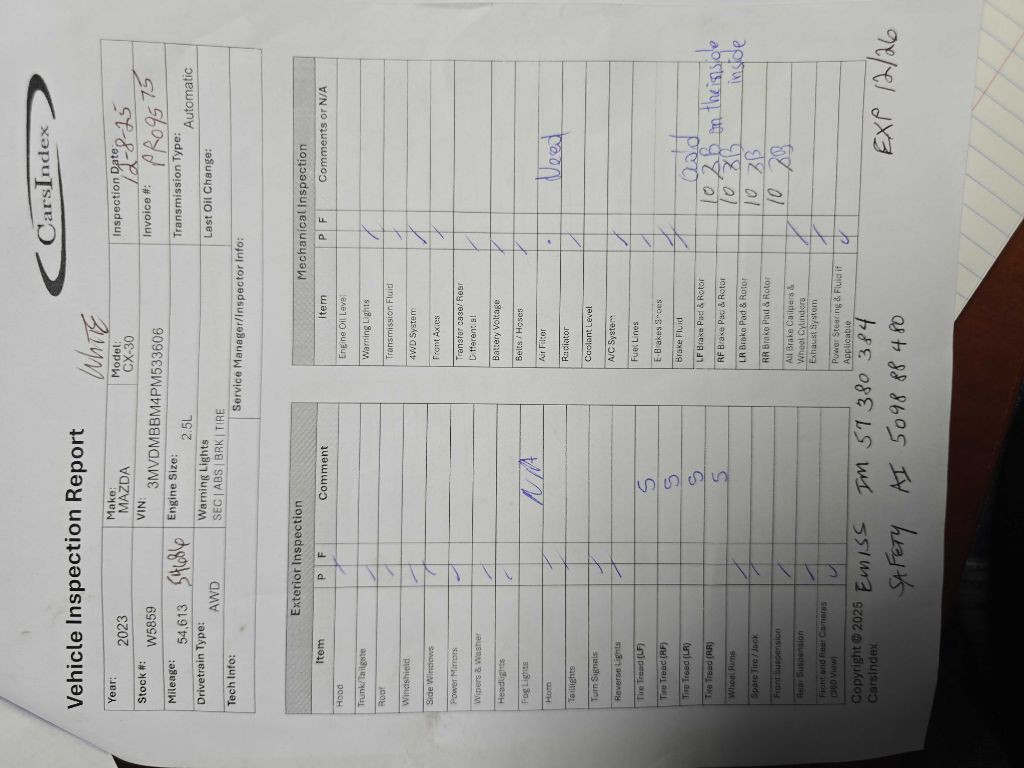 Vehicle Inspection Report
CarsIndex
WHITE
Year: 2023
Make: MAZDA
Model: CX-30
Inspection Date: 12-8-25
Stock #: W5859
VIN: 3MVDMBBM4PM533606
Invoice #: PR09575
Mileage: 54,613 54686
Engine Size: 2.5L
Transmission Type: Automatic
Drivetrain Type: AWD
Warning Lights
SEC | ABS | BRK | TIRE
Last Oil Change:
Tech Info:
Service Manager/Inspector Info:
Exterior Inspection
Item P F Comment
Hood
Trunk/Tailgate
Roof
Windshield
Side Windows
Power Mirrors
Wipers & Washer
Headlights
Fog Lights N/A
Horn
Taillights
Turn Signals
Reverse Lights
Tire Tread (LF) 5
Tire Tread (RF) 5
Tire Tread (LR) 5
Tire Tread (RR) 5
Wheel Rims
Spare Tire / Jack
Front Suspension
Rear Suspension
Front and Rear Cameras
(360 View)
Mechanical Inspection
Item P F Comments or N/A
Engine Oil Level
Warning Lights
Transmission Fluid
AWD System
Front Axles
Transfer case/ Rear
Differential
Battery Voltage
Belts / Hoses
Air Filter Need
Radiator
Coolant Level
A/C System
Fuel Lines
E Brakes Shoes
Brake Fluid
LF Brake Pad & Rotor 10 3B on the inside
RF Brake Pad & Rotor 10 3B inside
LR Brake Pad & Rotor 10 3B
RR Brake Pad & Rotor 10 3B
All Brake Calipers &
Wheel Cylinders
Exhaust System
Power Steering & Fluid if
Applicable
Copyright © 2025
CarsIndex
EMISS IM 57 380 384 EXP 12/26
SAFETY AI 5098 88 480